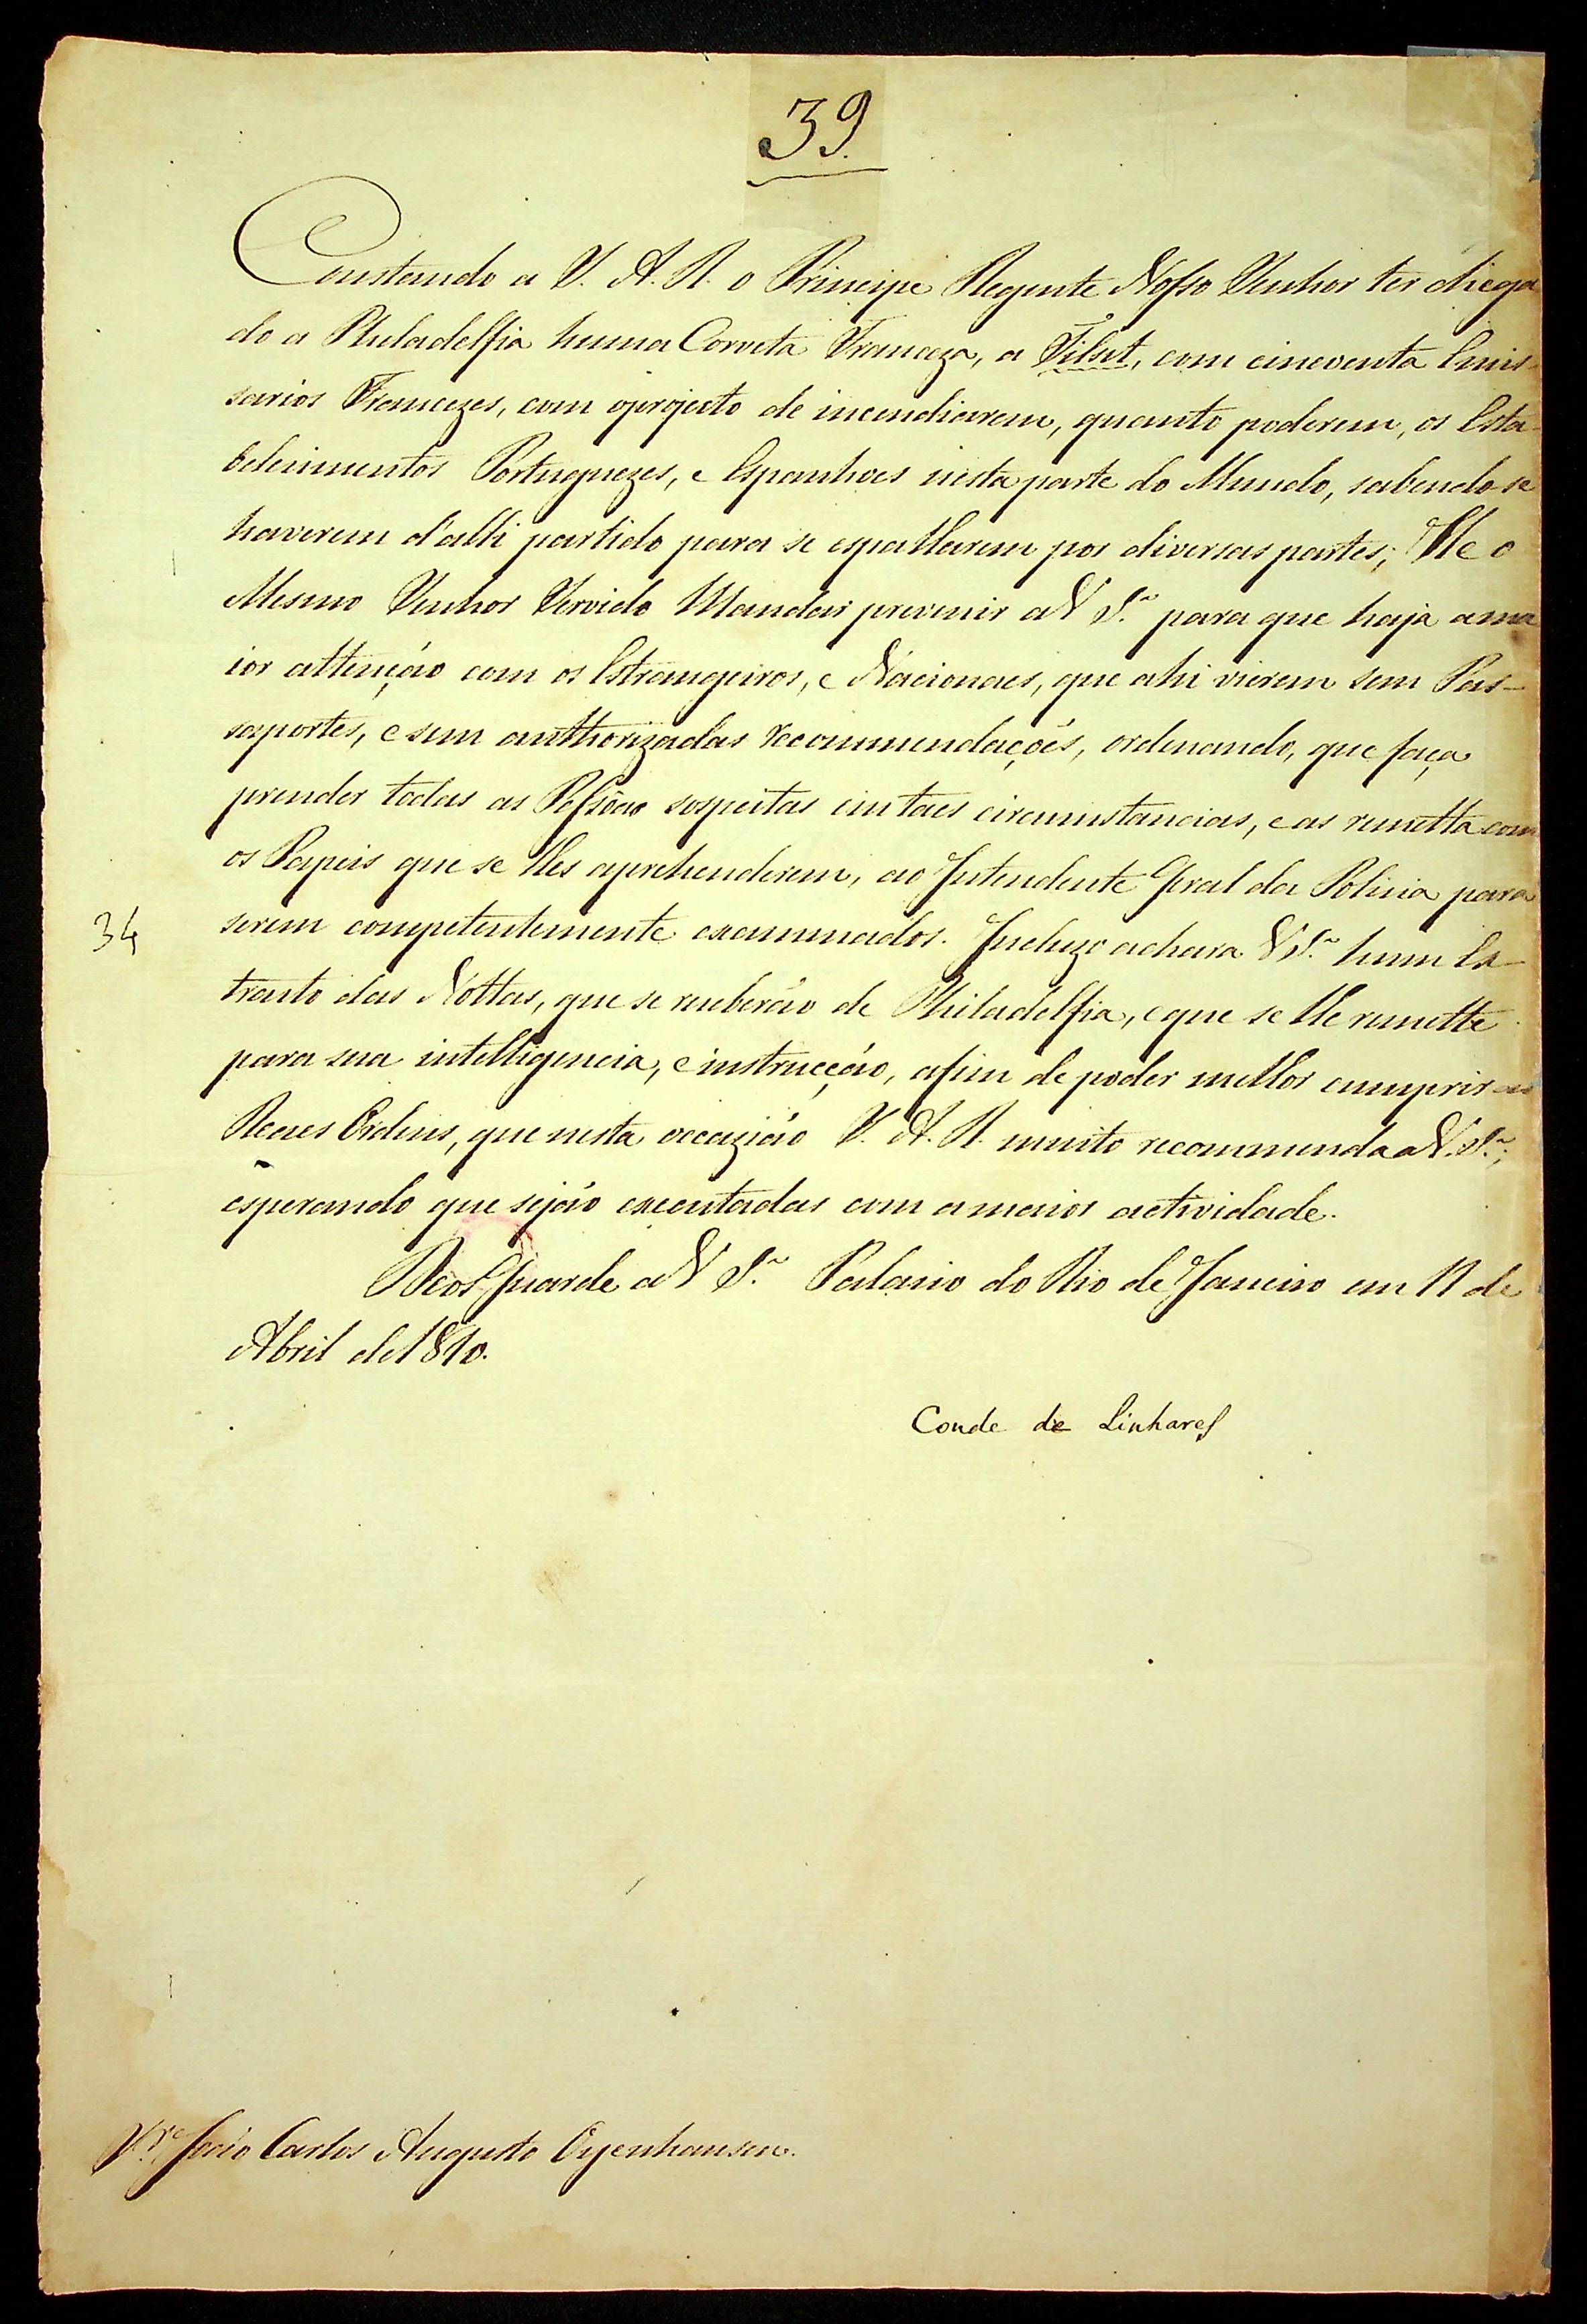 39.
Constando a S. A. R. o Principe Regente Nosso Senhor ter chega
do a Philadelfia huma Corveta Franceza, a Tilsit, com cincoenta Emis-
sarios Francezes, com oprojecto de incendiarem, quanto poderem, os Esta-
belecimentos Portuguezes, e Espanhoes nesta parte do Mundo, sabendo-se
haverem d'alli partido para se espalharem por diversas partes; He o
Mesmo Senhor Servido Mandar prevenir a V S.ª para que haja a ma
ior attenção com os Estrangeiros, e Nacionaes, que ahi vierem sem Pas-
saportes, e sem authorizadas recommendações, ordenando, que faça
prender todas as Pessoas suspeitas em taes circumstancias, e as remetta com
os Papeis que se lhes aprehenderem, ao Intendente Geral da Policia para
34 serem competentemente examinados. Incluzo achará V S.ª hum Ex-
tracto das Nottas, que se receberão de Philadelfia, e que se lhe remette
para sua intelligencia, e instrucção, afim de poder melhor cumprir as
Reaes Ordens, que nesta occazião S. A. R. muito recommenda a V. S.ª,
esperando que sejão executadas com a maior actividade.
Deos Guarde a V S.ª Palacio do Rio de Janeiro em 11 de
Abril de 1810.
Conde de Linhares
S.r João Carlos Augusto Oyenhausen.